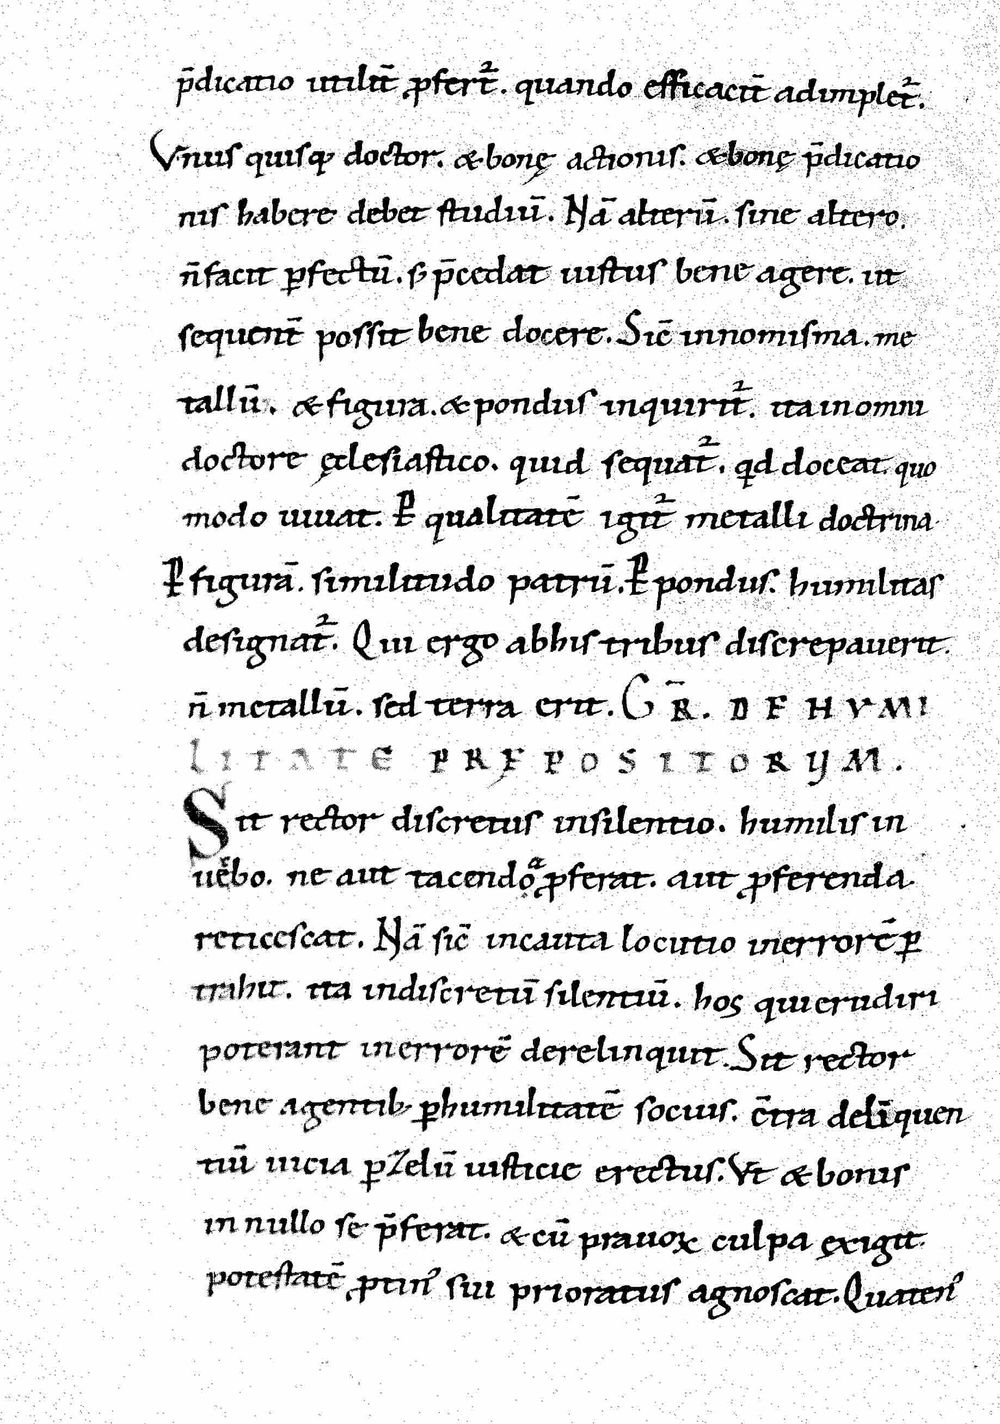 p̄dicatio utilit̄ ꝓfert᷑. quando efficacit̄ adimplet᷑.
Vnus quisq; doctor. & bonę actionis. & bonę p̄dicatio
nis habere debet studiū. Nā alterū. sine altero.
n̄ facit ꝑfectū. s; p̄cedat iustus bene agere. ut
sequent̄ possit bene docere. Sic̄ innomisma. me
tallū. & figura. & pondus inquirit᷑. ita inomni
doctore ęclesiastico. quid sequat᷑. qd doceat. quo
modo uiuat. P̱ qualitatē igit᷑ metalli doctrina
P̱ figurā. similitudo patrū. P̱ pondus. humilitas
designat᷑. Qui ergo abhis tribus discrepauerit.
n̄ metallū. sed terra erit. GR̄. DE HVMI
LITATE PREPOSITORUM.
Sit rector discretus insilentio. humilis in
uēbo. ne aut tacendoͣ ꝓferat. aut ꝓferenda
reticescat. Nā sic̄ incauta locutio inerrorē ꝑ
trahit. ita indiscretū silentiū. hos qui erudiri
poterant inerrorē derelinquit. Sit rector
bene agentib; ꝑhumilitatē socius. c̄tra delīquen
tiū uicia ꝑ zelū iusticie erectus. Vt & bonis
in nullo se p̄ferat. & cū prauoꝝ culpa exigit
potestatē ꝓtin᷒ sui prioratus agnoscat. Quaten᷒